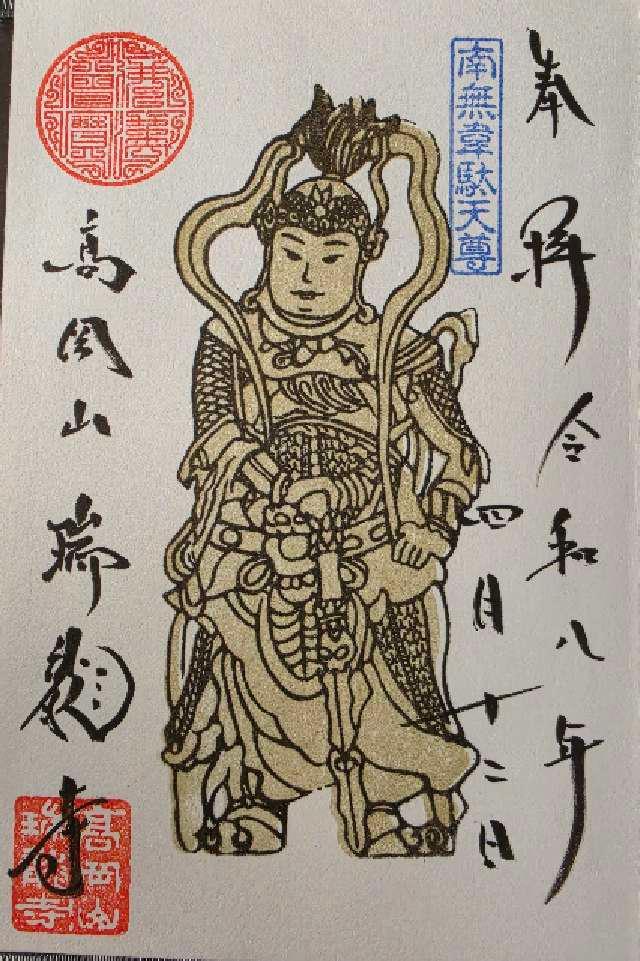 奉拝
令和八年
四月十二日
南無韋駄天尊
高岡山瑞龍寺
高岡山
瑞龍寺